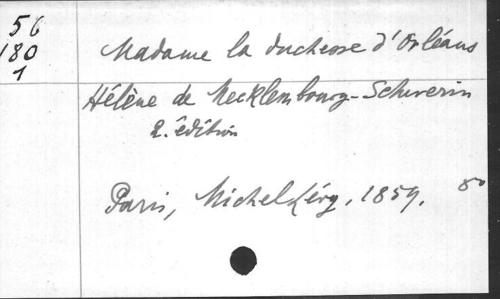 56
180
1
Madame la duchesse d'Orléans
Hélène de Mecklembourg-Schwerin
2.e édition
Paris, Michel Lévy, 1859. 8o